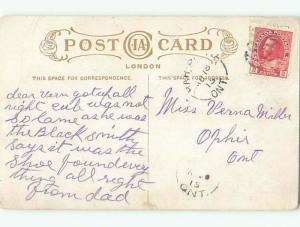 POST CARD
LONDON
THIS SPACE FOR CORRESPONDENCE.
THIS SPACE FOR ADDRESS.
dear vern got hall
right cub was not
so lame as he was
the Black smith
says it was the
shoe found every
thing all right
from dad
Miss Verna Miller
Ophir
Ont
ONT.
15
ONT.